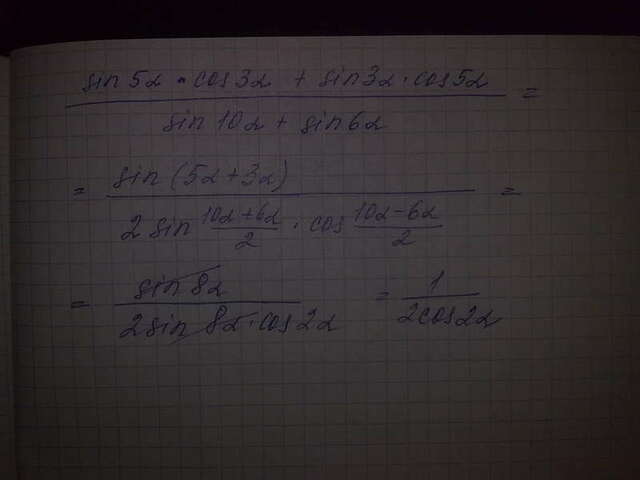 sin 5α · cos 3α + sin 3α · cos 5α / sin 10α + sin 6α =
= sin (5α + 3α) / 2 sin (10α + 6α)/2 · cos (10α − 6α)/2 =
= sin 8α / 2 sin 8α · cos 2α = 1 / 2cos 2α